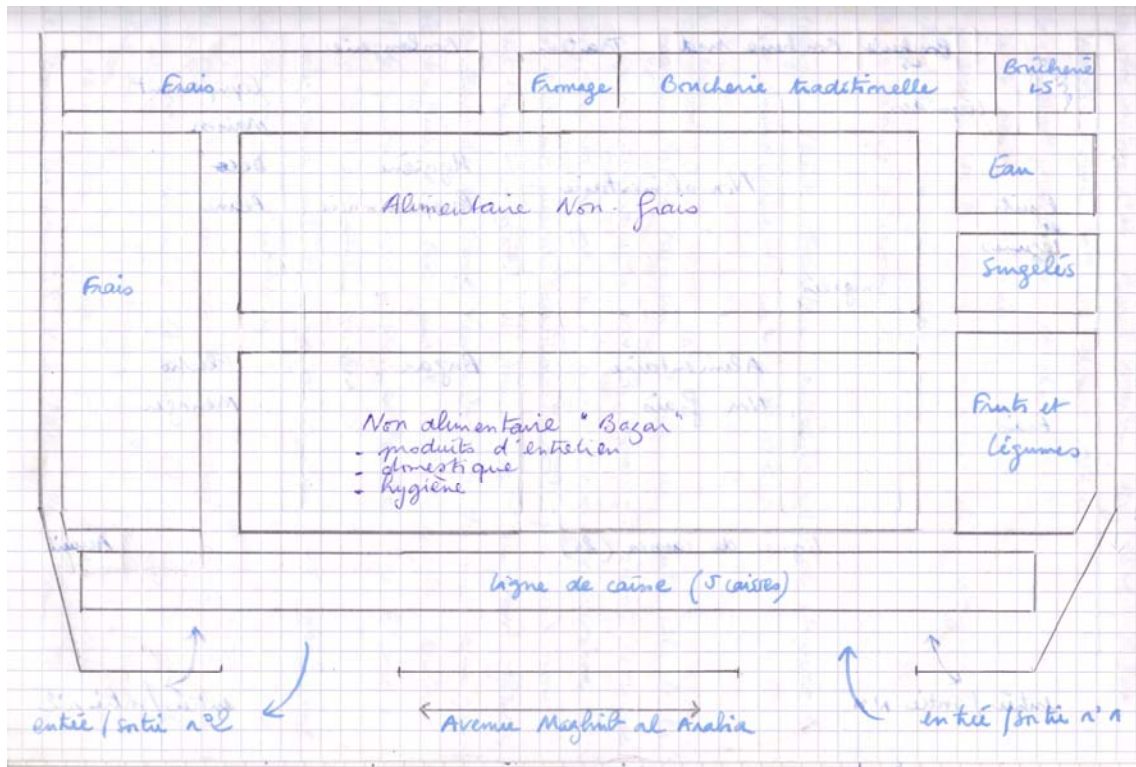 Frais
Fromage
Boucherie traditionelle
Boucherie
LS
Alimentaire Non-frais
Eau
Surgelés
Frais
Non alimentaire "Bazar"
- produits d'entretien
- domestique
- hygiène
Fruits et
légumes
ligne de caisse (5 caisses)
entrée / sortie n°2
Avenue Maghrib al Arabia
entrée / sortie n°1